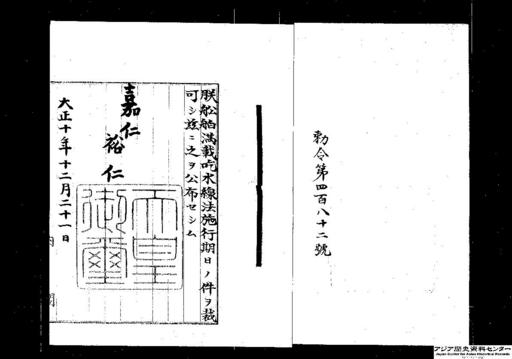 勅令第四百八十二號
朕船舶満載吃水線法施行期日ノ件ヲ裁
可シ茲ニ之ヲ公布セシム
嘉仁
裕仁
天皇
御璽
大正十年十二月二十一日
内閣
アジア歴史資料センター
Japan Center for Asian Historical Records